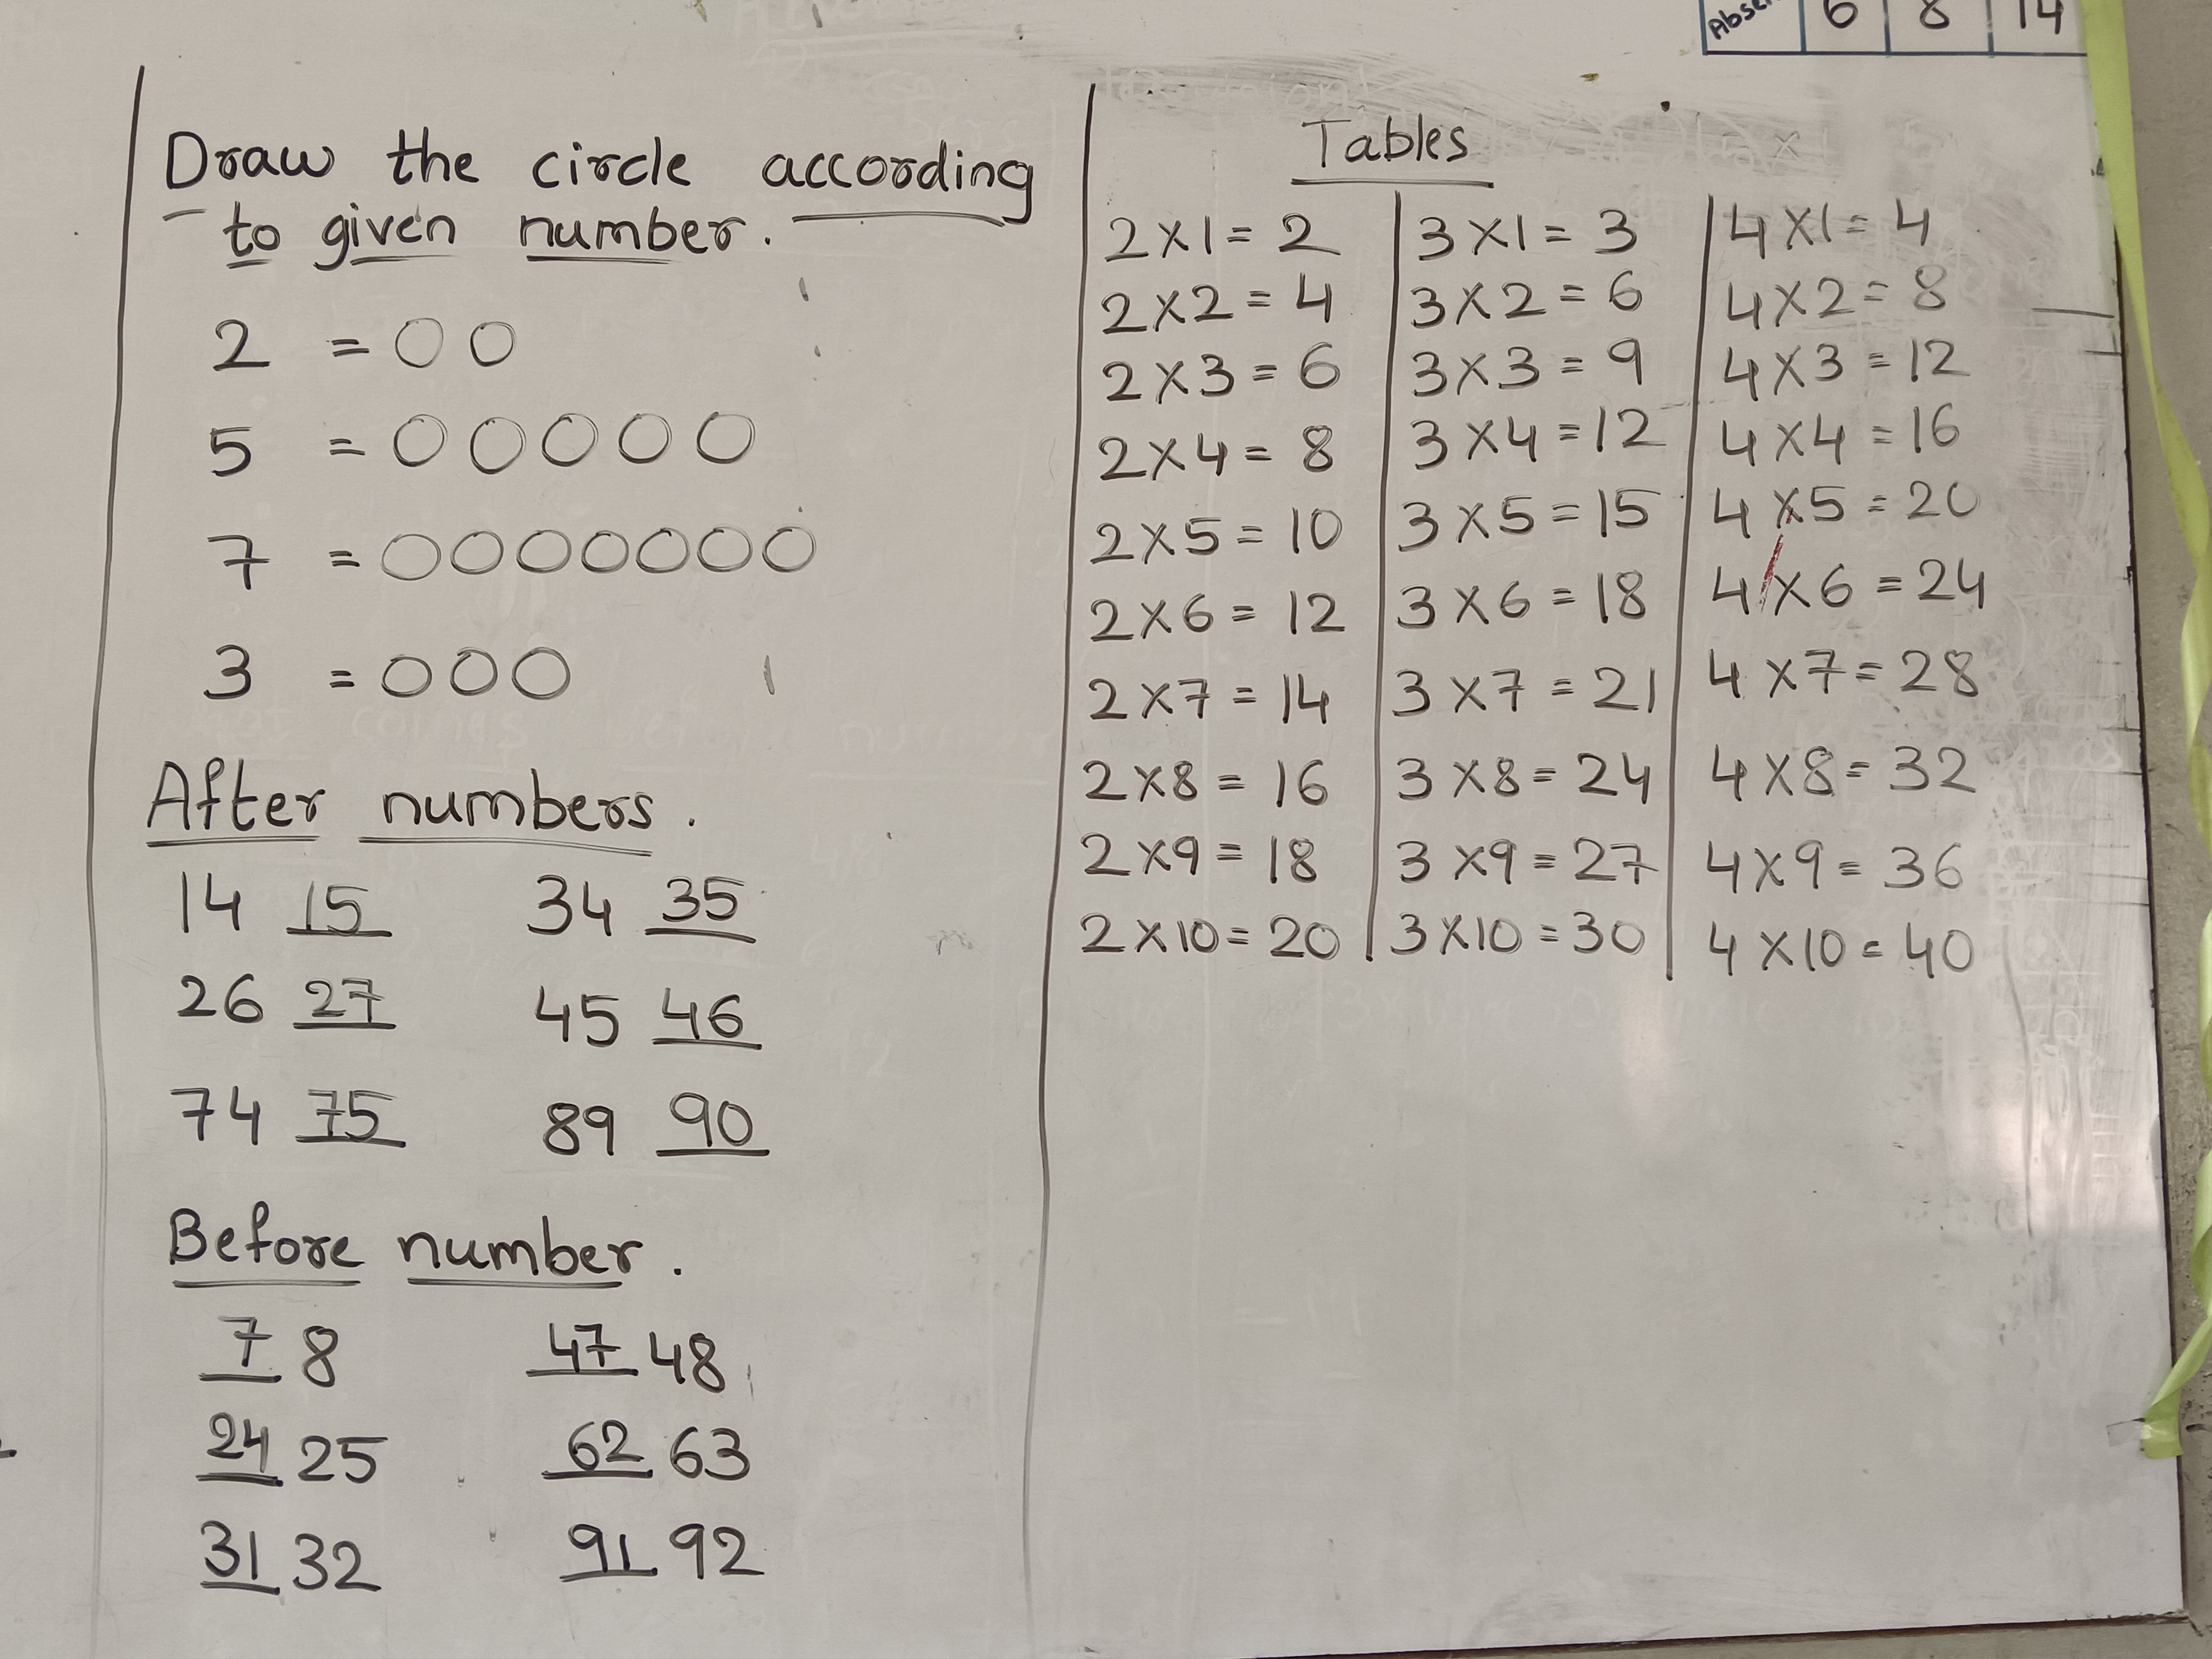 Absen 6 8 14
Draw the circle according
to given number.
2 = O O
5 = O O O O O
7 = O O O O O O O
3 = O O O
After numbers.
14 15 34 35
26 27 45 46
74 75 89 90
Before number.
7 8 47 48
24 25 62 63
31 32 91 92
Tables
2 X 1 = 2 3 X 1 = 3 4 X 1 = 4
2 X 2 = 4 3 X 2 = 6 4 X 2 = 8
2 X 3 = 6 3 X 3 = 9 4 X 3 = 12
2 X 4 = 8 3 X 4 = 12 4 X 4 = 16
2 X 5 = 10 3 X 5 = 15 4 X 5 = 20
2 X 6 = 12 3 X 6 = 18 4 X 6 = 24
2 X 7 = 14 3 X 7 = 21 4 X 7 = 28
2 X 8 = 16 3 X 8 = 24 4 X 8 = 32
2 X 9 = 18 3 X 9 = 27 4 X 9 = 36
2 X 10 = 20 3 X 10 = 30 4 X 10 = 40